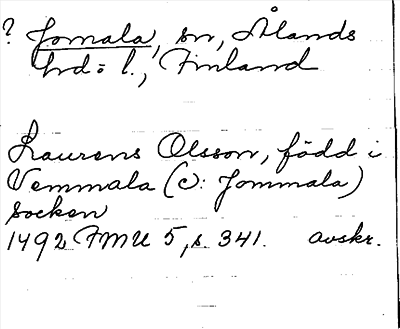 ? Jomala, sn, Ålands
hd:l., Finland
Laurens Olsson, född i
Vemmala (ɔ: Jommala)
socken
1492 FMU 5, s. 341. avskr.